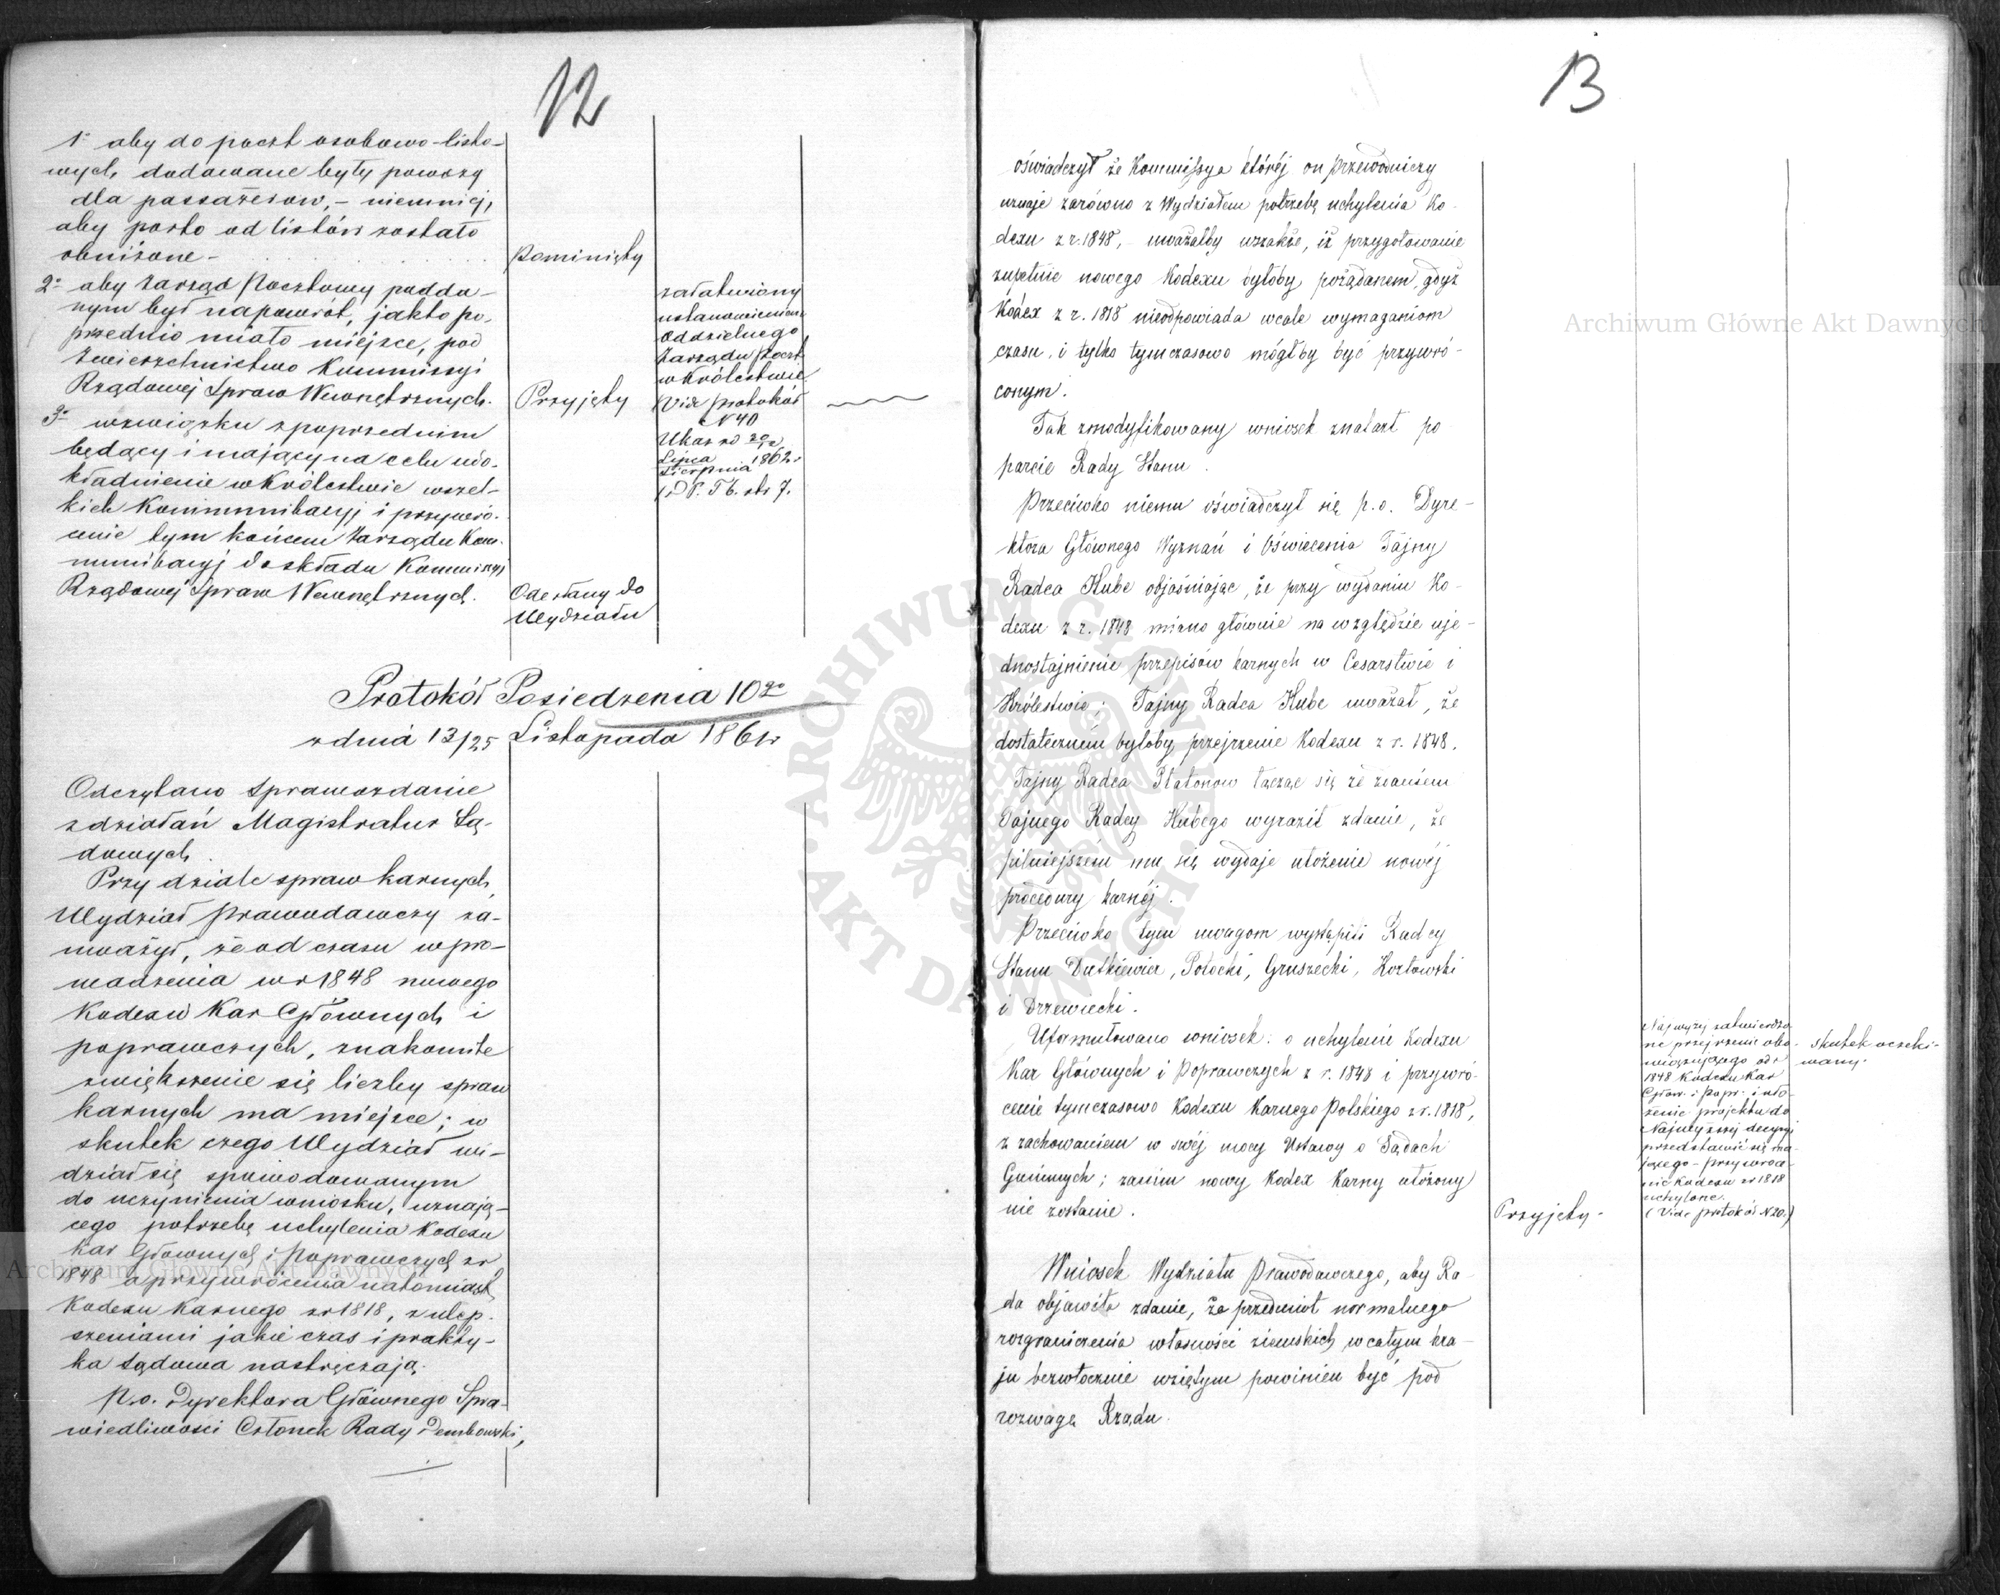 12
1° aby do poczt osobowo-listo-
wych dodawane były powozy
dla passażerow, – niemniej,
aby porto od listów zostało
obniżone –
pominięty
2° aby Zarząd Pocztowy podda-
nym był napowrót, jak to po-
przednio miało miejsce, pod
Zwierzchnictwo Kommissyi
Rządowej Spraw Wewnętrznych.
Przyjęty
załatwiony
ustanowieniem
oddzielnego
Zarządu poczt
w Królestwie
Vide protokół
N 40
Ukaz z d
Lipca
Sierpnia
1862 r
D. P. T 6. str 7.
3° w związku z poprzednim
będący i mający na celu udo-
kładnienie w Królestwie wszel-
kich Kommunikacyj i przywró-
cenie tym końcem Zarządu Kom-
munikacyj do składu Kommissyi
Rządowej Spraw Wewnętrznych.
Odesłany do
Wydziału
Protokół Posiedzenia 10go
z dnia 13/25 Listopada 1861 r
Odczytano Sprawozdanie
z działań Magistratur Są-
dowych.
Przy dziale spraw karnych,
Wydział Prawodawczy za-
uważył, że od czasu wpro-
wadzenia w r 1848 nowego
Kodexu Kar Głównych i
poprawczych, znakomite
zwiększenie się liczby spraw
karnych ma miejsce; w
skutek czego Wydział wi-
dział się spowodowanym
do uczynienia wniosku, uznają-
cego potrzebę uchylenia Kodexu
Kar Głównych i Poprawczych z r
1848 a przywrócenia natomiast
Kodexu Karnego z r 1818, z ulep-
szeniami jakie czas i prakty-
ka sądowa nastręczają.
p.o. Dyrektora Głównego Spra-
wiedliwości Członek Rady Dembowski,
13
oświadczył że Kommissya któréj on przewodniczy
uznaje zarówno z Wydziałem potrzebę uchylenia Ko-
dexu z r. 1848, – uważałby wszakże, iż przygotowanie
zupełnie nowego Kodexu byłoby pożądanem, gdyż
Kodex z r. 1818 nieodpowiada wcale wymaganiom
czasu, i tylko tymczasowo mógłby być przywró-
conym.
Tak zmodyfikowany wniosek znalazł po-
parcie Rady Stanu.
Przeciwko niemu oświadczył się p. o. Dyre-
ktora Głównego Wyznań i Oświecenia Tajny
Radca Hube objaśniając, że przy wydaniu Ko-
dexu z r. 1848 miano głównie na względzie uje-
dnostajnienie przepisów karnych w Cesarstwie i
Królestwie; Tajny Radca Hube uważał, że
dostatecznem byłoby przejrzenie Kodexu z r. 1848.
Tajny Radca Płatonow łącząc się ze zdaniem
Tajnego Radcy Hubego wyraził zdanie, że
pilniejszem mu się wydaje ułożenie nowéj
procedury karnéj.
Przeciwko tym uwagom wystąpili Radcy
Stanu Dutkiewicz, Potocki, Gruszecki, Kozłowski
i Drzewiecki.
Uformułowano wniosek: o uchylenie Kodexu
Kar Głównych i Poprawczych z r. 1848 i przywró-
cenie tymczasowo Kodexu Karnego Polskiego z r. 1818,
z zachowaniem w swéj mocy Ustawy o Sądach
Gminnych; zanim nowy Kodex Karny ułożony
nie zostanie.
Przyjęty.
Najwyżej zatwierdzo-
ne przejrzenie obo-
wiązującego od r
1848 Kodexu Kar
Głów. i Popr. i uło-
żenie projektu do
Najwyższej decyzyi
przedstawić się ma-
jącego – przywróce-
nie Kodexu z r 1818
uchylone.
(Vide protokół N 20.)
Skutek oczeki-
wany.
Wniosek Wydziału Prawodawczego, aby Ra-
da objawiła zdanie, że przedmiot normalnego
rozgraniczenia własności ziemskich w całym kra-
ju bezwłocznie wziętym powinien być pod
rozwagę Rządu.
Archiwum Główne Akt Dawnych
Archiwum Główne Akt Dawnych
ARCHIWUM GŁÓWNE AKT DAWNYCH